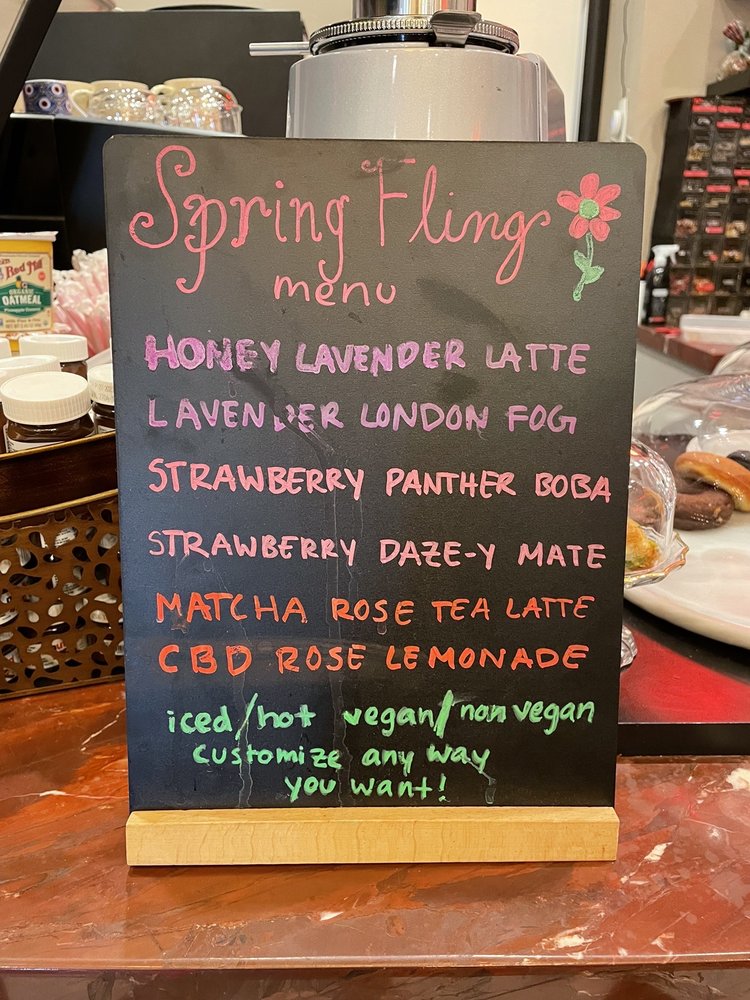 Spring Fling
menu
HONEY LAVENDER LATTE
LAVENDER LONDON FOG
STRAWBERRY PANTHER BOBA
STRAWBERRY DAZE-Y MATE
MATCHA ROSE TEA LATTE
CBD ROSE LEMONADE
iced/hot vegan/non vegan
customize any way
you want!
Red Mill
ORGANIC
OATMEAL